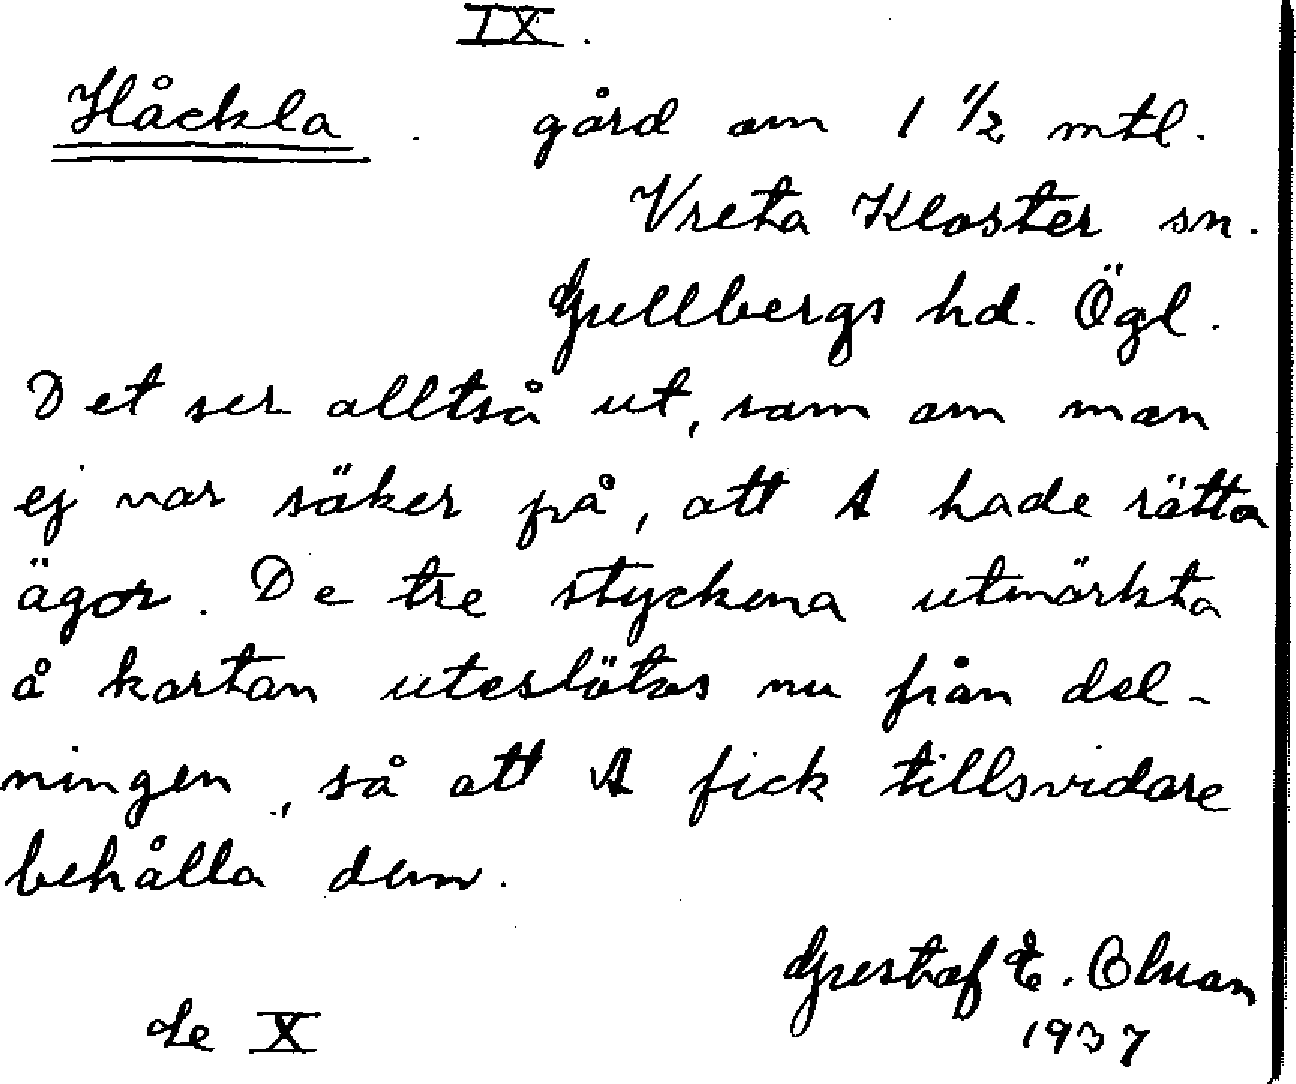 IX.
Håckla. gård om 1 1/2 mtl.
Vreta Kloster sn.
Gullbergs hd. Ögl.
Det ser alltså ut, som om man
ej var säker på, att A hade rätta
ägor. De tre styckena utmärkta
å kartan uteslötos nu från del-
ningen, så att A fick tillsvidare
behålla dem.
Gustaf E.
1937
de X